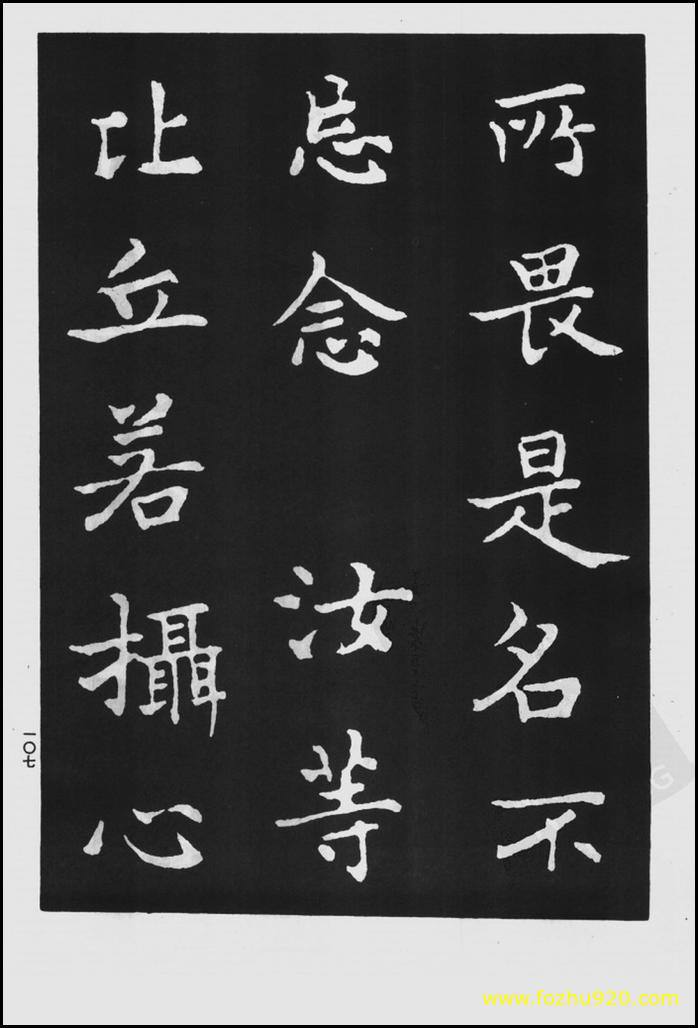 所畏是名不
忘念 汝等
比丘若攝心
一〇七
www.fozhu920.com